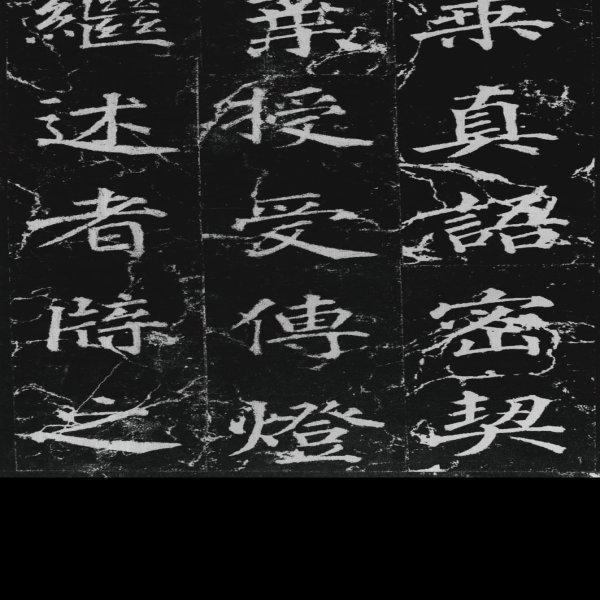 乘真語密契
葉授受傳燈
繼述者之